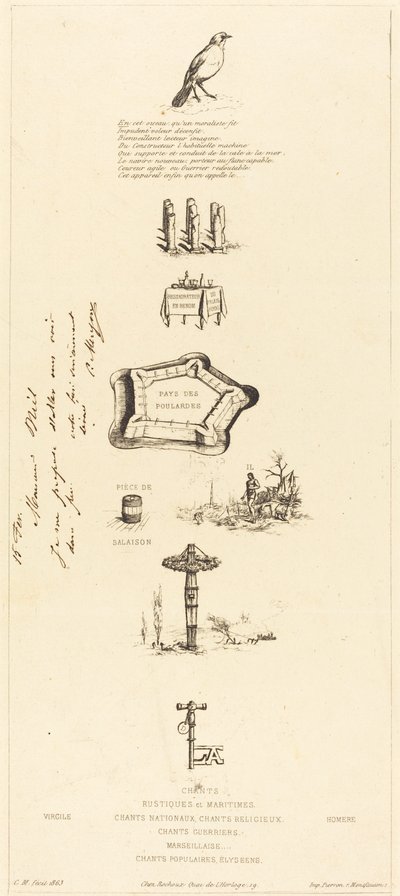 En cet oiseau, qu'un moraliste fit
Impudent voleur déconfit,
Bienveillant lecteur imagine,
Du Constructeur l'habituelle machine
Que supporte et conduit de la cale à la mer,
Le navire nouveau; porteur au flanc capable,
Coureur agile ou Guerrier redoutable
Cet appareil enfin qu'on appelle ....
RESTAURATEUR
EN RENOM
DU
PALAIS
PAYS DES
POULARDES
IL
PIECE DE
SALAISON
15 Fev.
Monsieur Niel
Je me propose d'aller vous voir
dans
votre
C. Meryon
LA
CHANTS
RUSTIQUES et MARITIMES.
VIRGILE
CHANTS NATIONAUX, CHANTS RELIGIEUX.
HOMERE
CHANTS GUERRIERS.
MARSEILLAISE....
CHANTS POPULAIRES, ÉLYSÉENS.
C. M. fécit 1863
Chez Rochoux Quai de L'Horloge. 19.
Imp. Pierron. r. Montfaucon. 1